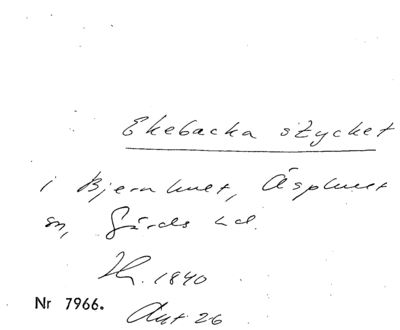 Ekebacka stycket
i Bjernhuet, Äsphuet
sn, Gärds hd.
Th. 1840
Nr 7966.
Akt 26